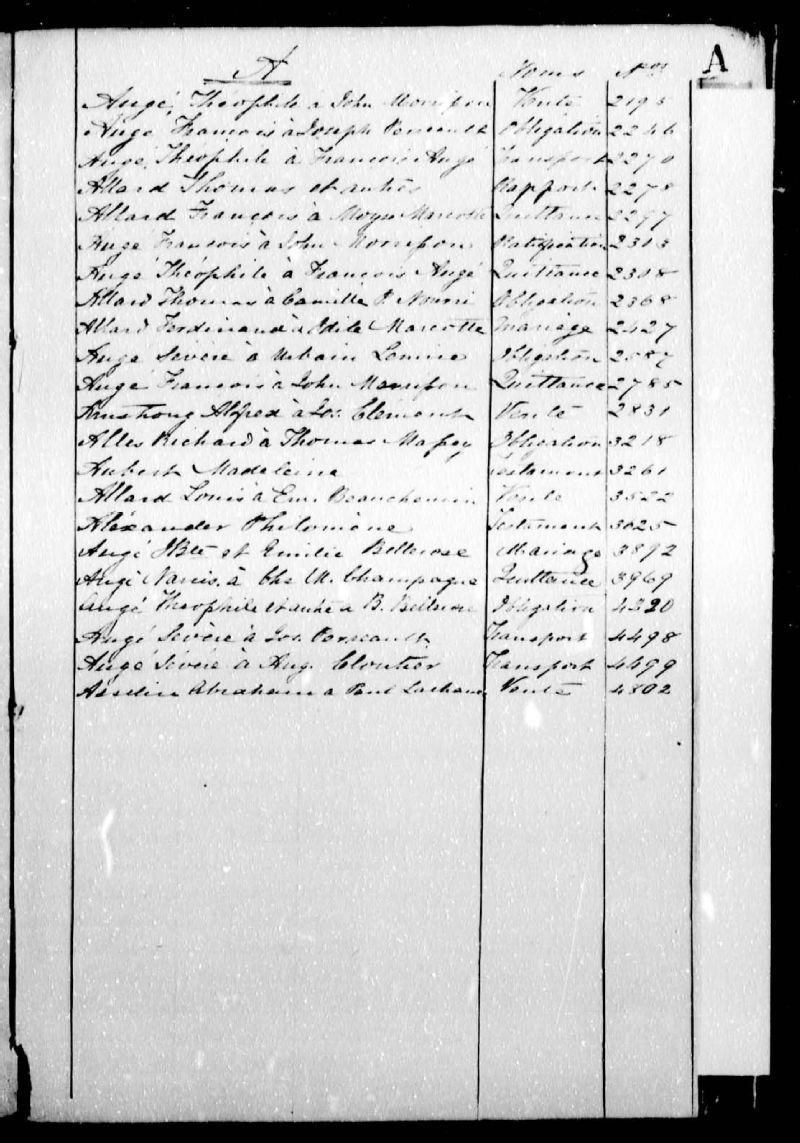 A
A Noms Nos
Augé, Théophile à John Monspou Vente 2195
Augé François à Joseph Perreault Obligation 2246
Augé, Théophile à François Augé Transport 2270
Allard Thomas et autres Rapport 2278
Allard François à Moyse Marcotte Quittance 2297
Augé François à John Ratification 2303
Augé Théophile à François Augé Quittance 2308
Allard Thomas à Camille P. Obligation 2368
Allard Ferdinand à Odile Marcotte Mariage 2427
Augé Sévère à Urbain Lemire Obligation 2587
Augé François à John Quittance 2785
Armstrong à Jos. Clément Vente 2831
Alles Richard à Thomas Obligation 3218
Aubert Madeleine Testament 3261
Allard Louis à Em. Beauchemin Vente 3522
Aléxander Philomène Testament
Augé JBte et Emilie Bellerose Mariage 3892
Augé Narcis. à Chs M. Champagne Quittance 3969
Augé Théophile et autre à B. Bellerose Obligation 4220
Augé Sévère à Jos. Perreault Transport 4498
Augé Sévère à Aug. Cloutier Transport 4499
Abraham à Paul Vente 4802